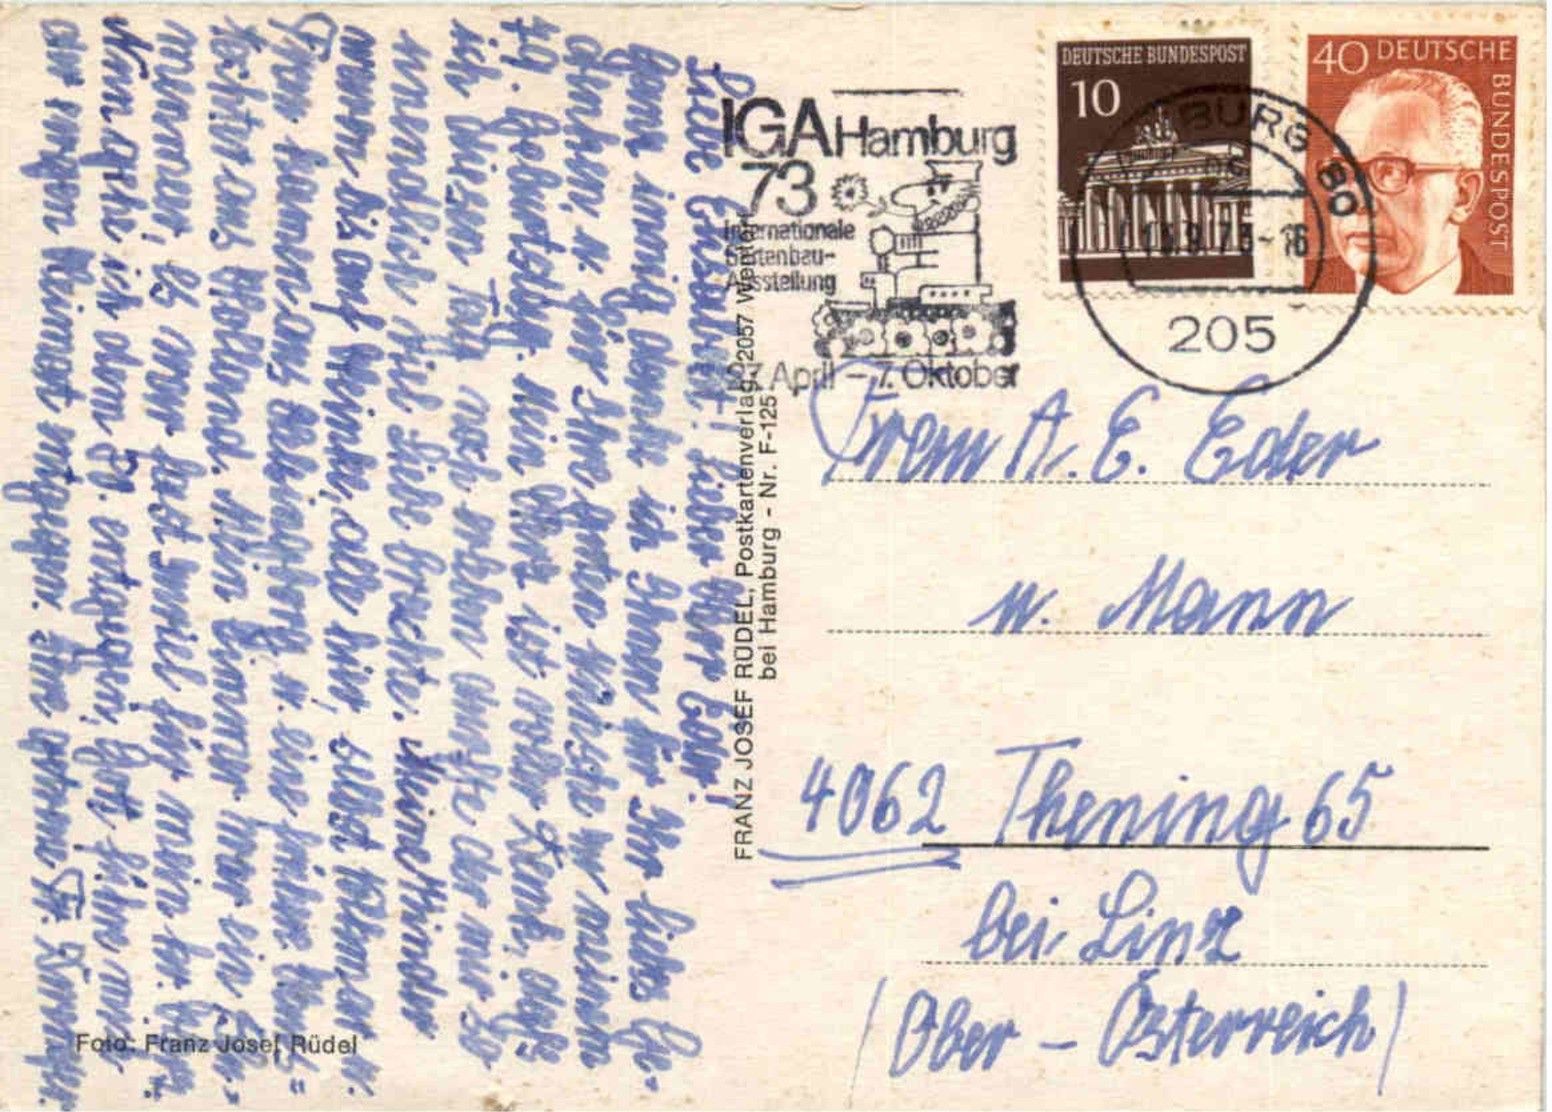 IGA Hamburg
73
Internationale
Gartenbau-
Ausstellung
27. April – 7. Oktober
DEUTSCHE BUNDESPOST
10
40 DEUTSCHE
BUNDESPOST
BURG 80
-16
205
Liebe Lieber Herr Eder!
Ganz innig danke ich Ihnen für Ihr liebes Ge-
denken u. für Ihre guten Wünsche zu meinem
79. Geburtstag. Mein Herz ist voller Dank, daß
ich diesen Tag noch erleben durfte der mir so
unendlich viel Liebe brachte. Meine Kinder
waren bis auf alle hier, selbst Volkmar u.
Frau kamen aus u. eine frühere Haus-
tochter aus Holland. Mein Zimmer war ein Blu-
menmeer, es war fast zuviel für mein Herz.
Nun gehe ich dem 80. entgegen, Gott führe mich
der ewigen Heimat entgegen. Ihre getreue
Foto: Franz Josef Rüdel
FRANZ JOSEF RÜDEL, Postkartenverlag, 2057 Wentorf
bei Hamburg - Nr. F-125
Frau A. E. Eder
u. Mann
4062 Thening 65
bei Linz
(Ober-Österreich)